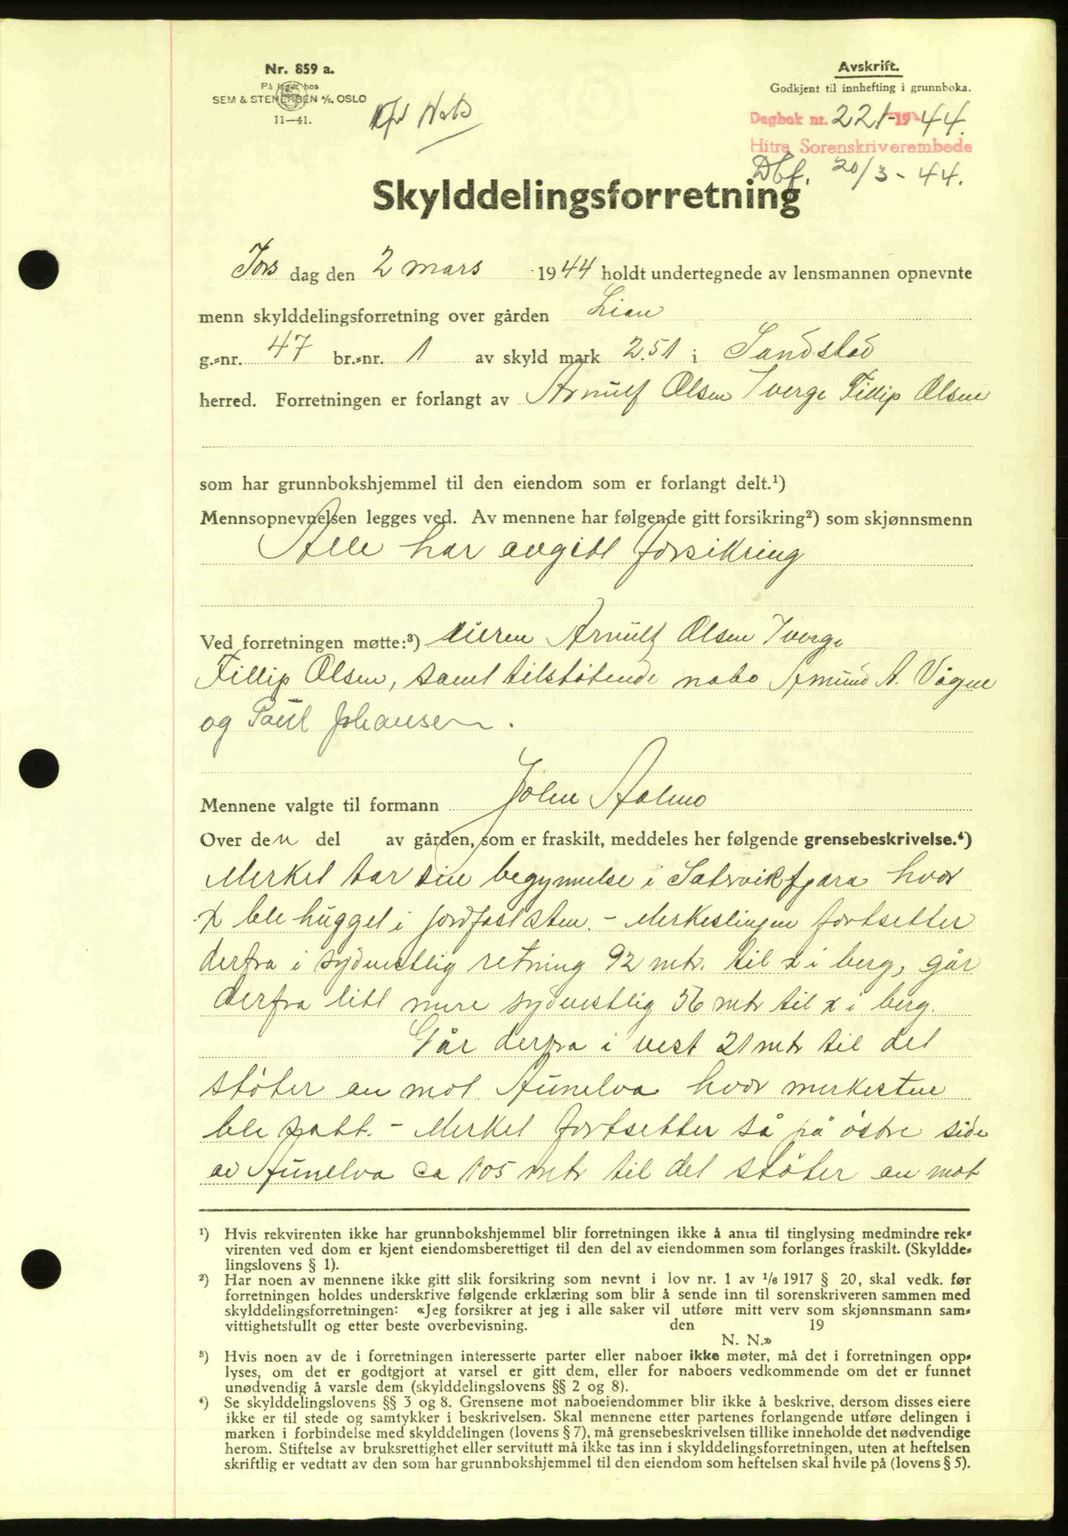 Nr. 859 a.
På lager hos
SEM & STENERSEN A/S, OSLO
11—41.
Avskrift.
Godkjent til innhefting i grunnboka.
Dagbok nr. 221-1944.
Hitra Sorenskriverembede
Dbf. 20/3-44.
Skylddelingsforretning
Tors dag den 2 mars 1944 holdt undertegnede av lensmannen opnevnte
menn skylddelingsforretning over gården Lian
g.-nr. 47 br.-nr. 1 av skyld mark 2.51 i Sandstad
herred. Forretningen er forlangt av Arnulf Olsen Tverge Fillip Olsen
som har grunnbokshjemmel til den eiendom som er forlangt delt.¹)
Mennsopnevnelsen legges ved. Av mennene har følgende gitt forsikring²) som skjønnsmenn
Alle har avgitt forsikring
Ved forretningen møtte:³) eieren Arnulf Olsen Tverge
Fillip Olsen, samt tilstøtende nabo Amund A. Vågne
og Paul Johansen.
Mennene valgte til formann John Aalmo
Over den del av gården, som er fraskilt, meddeles her følgende grensebeskrivelse.⁴)
Merket tar sin begynnelse i Satervikfjæra hvor
x ble hugget i jordfast sten. - Merkeslinjen fortsetter
derfra i sydvestlig retning 92 mtr. til x i berg, går
derfra litt mere sydvestlig 56 mtr til x i berg.
Går derfra i vest 21 mtr til det
støter an mot Aunelva hvor merkesten
ble satt. - Merket fortsetter så på østre side
av Aunelva ca 105 mtr til det støter an mot
¹) Hvis rekvirenten ikke har grunnbokshjemmel blir forretningen ikke å anta til tinglysing medmindre rek-
virenten ved dom er kjent eiendomsberettiget til den del av eiendommen som forlanges fraskilt. (Skyldde-
lingslovens § 1).
²) Har noen av mennene ikke gitt slik forsikring som nevnt i lov nr. 1 av 1/6 1917 § 20, skal vedk. før
forretningen holdes underskrive følgende erklæring som blir å sende inn til sorenskriveren sammen med
skylddelingsforretningen: «Jeg forsikrer at jeg i alle saker vil utføre mitt verv som skjønnsmann sam-
vittighetsfullt og etter beste overbevisning. den 19
N. N.»
³) Hvis noen av de i forretningen interesserte parter eller naboer ikke møter, må det i forretningen opp-
lyses, om det er godtgjort at varsel er gitt dem, eller for naboers vedkommende om det er funnet
unødvendig å varsle dem (skylddelingslovens §§ 2 og 8).
⁴) Se skylddelingslovens §§ 3 og 8. Grensene mot naboeiendommer blir ikke å beskrive, dersom disses eiere
ikke er til stede og samtykker i beskrivelsen. Skal mennene etter partenes forlangende utføre delingen i
marken i forbindelse med skylddelingen (lovens § 7), må grensebeskrivelsen tillike inneholde det nødvendige
herom. Stiftelse av bruksrettighet eller servitutt må ikke tas inn i skylddelingsforretningen, uten at heftelsen
skriftlig er vedtatt av den som har grunnbokshjemmel til den eiendom som heftelsen skal hvile på (lovens § 5).